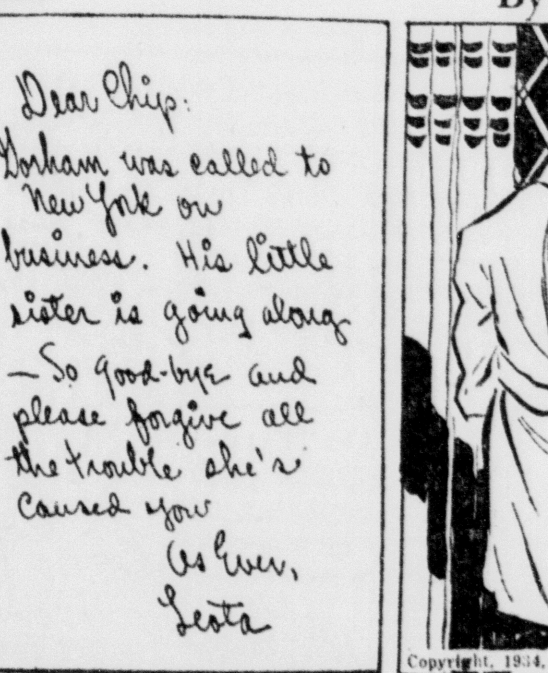 By
Dear Chip:
Gorham was called to
New York on
business. His little
sister is going along
— So good-bye and
please forgive all
the trouble she's
caused you
As Ever,
Leota
Copyright, 1934,